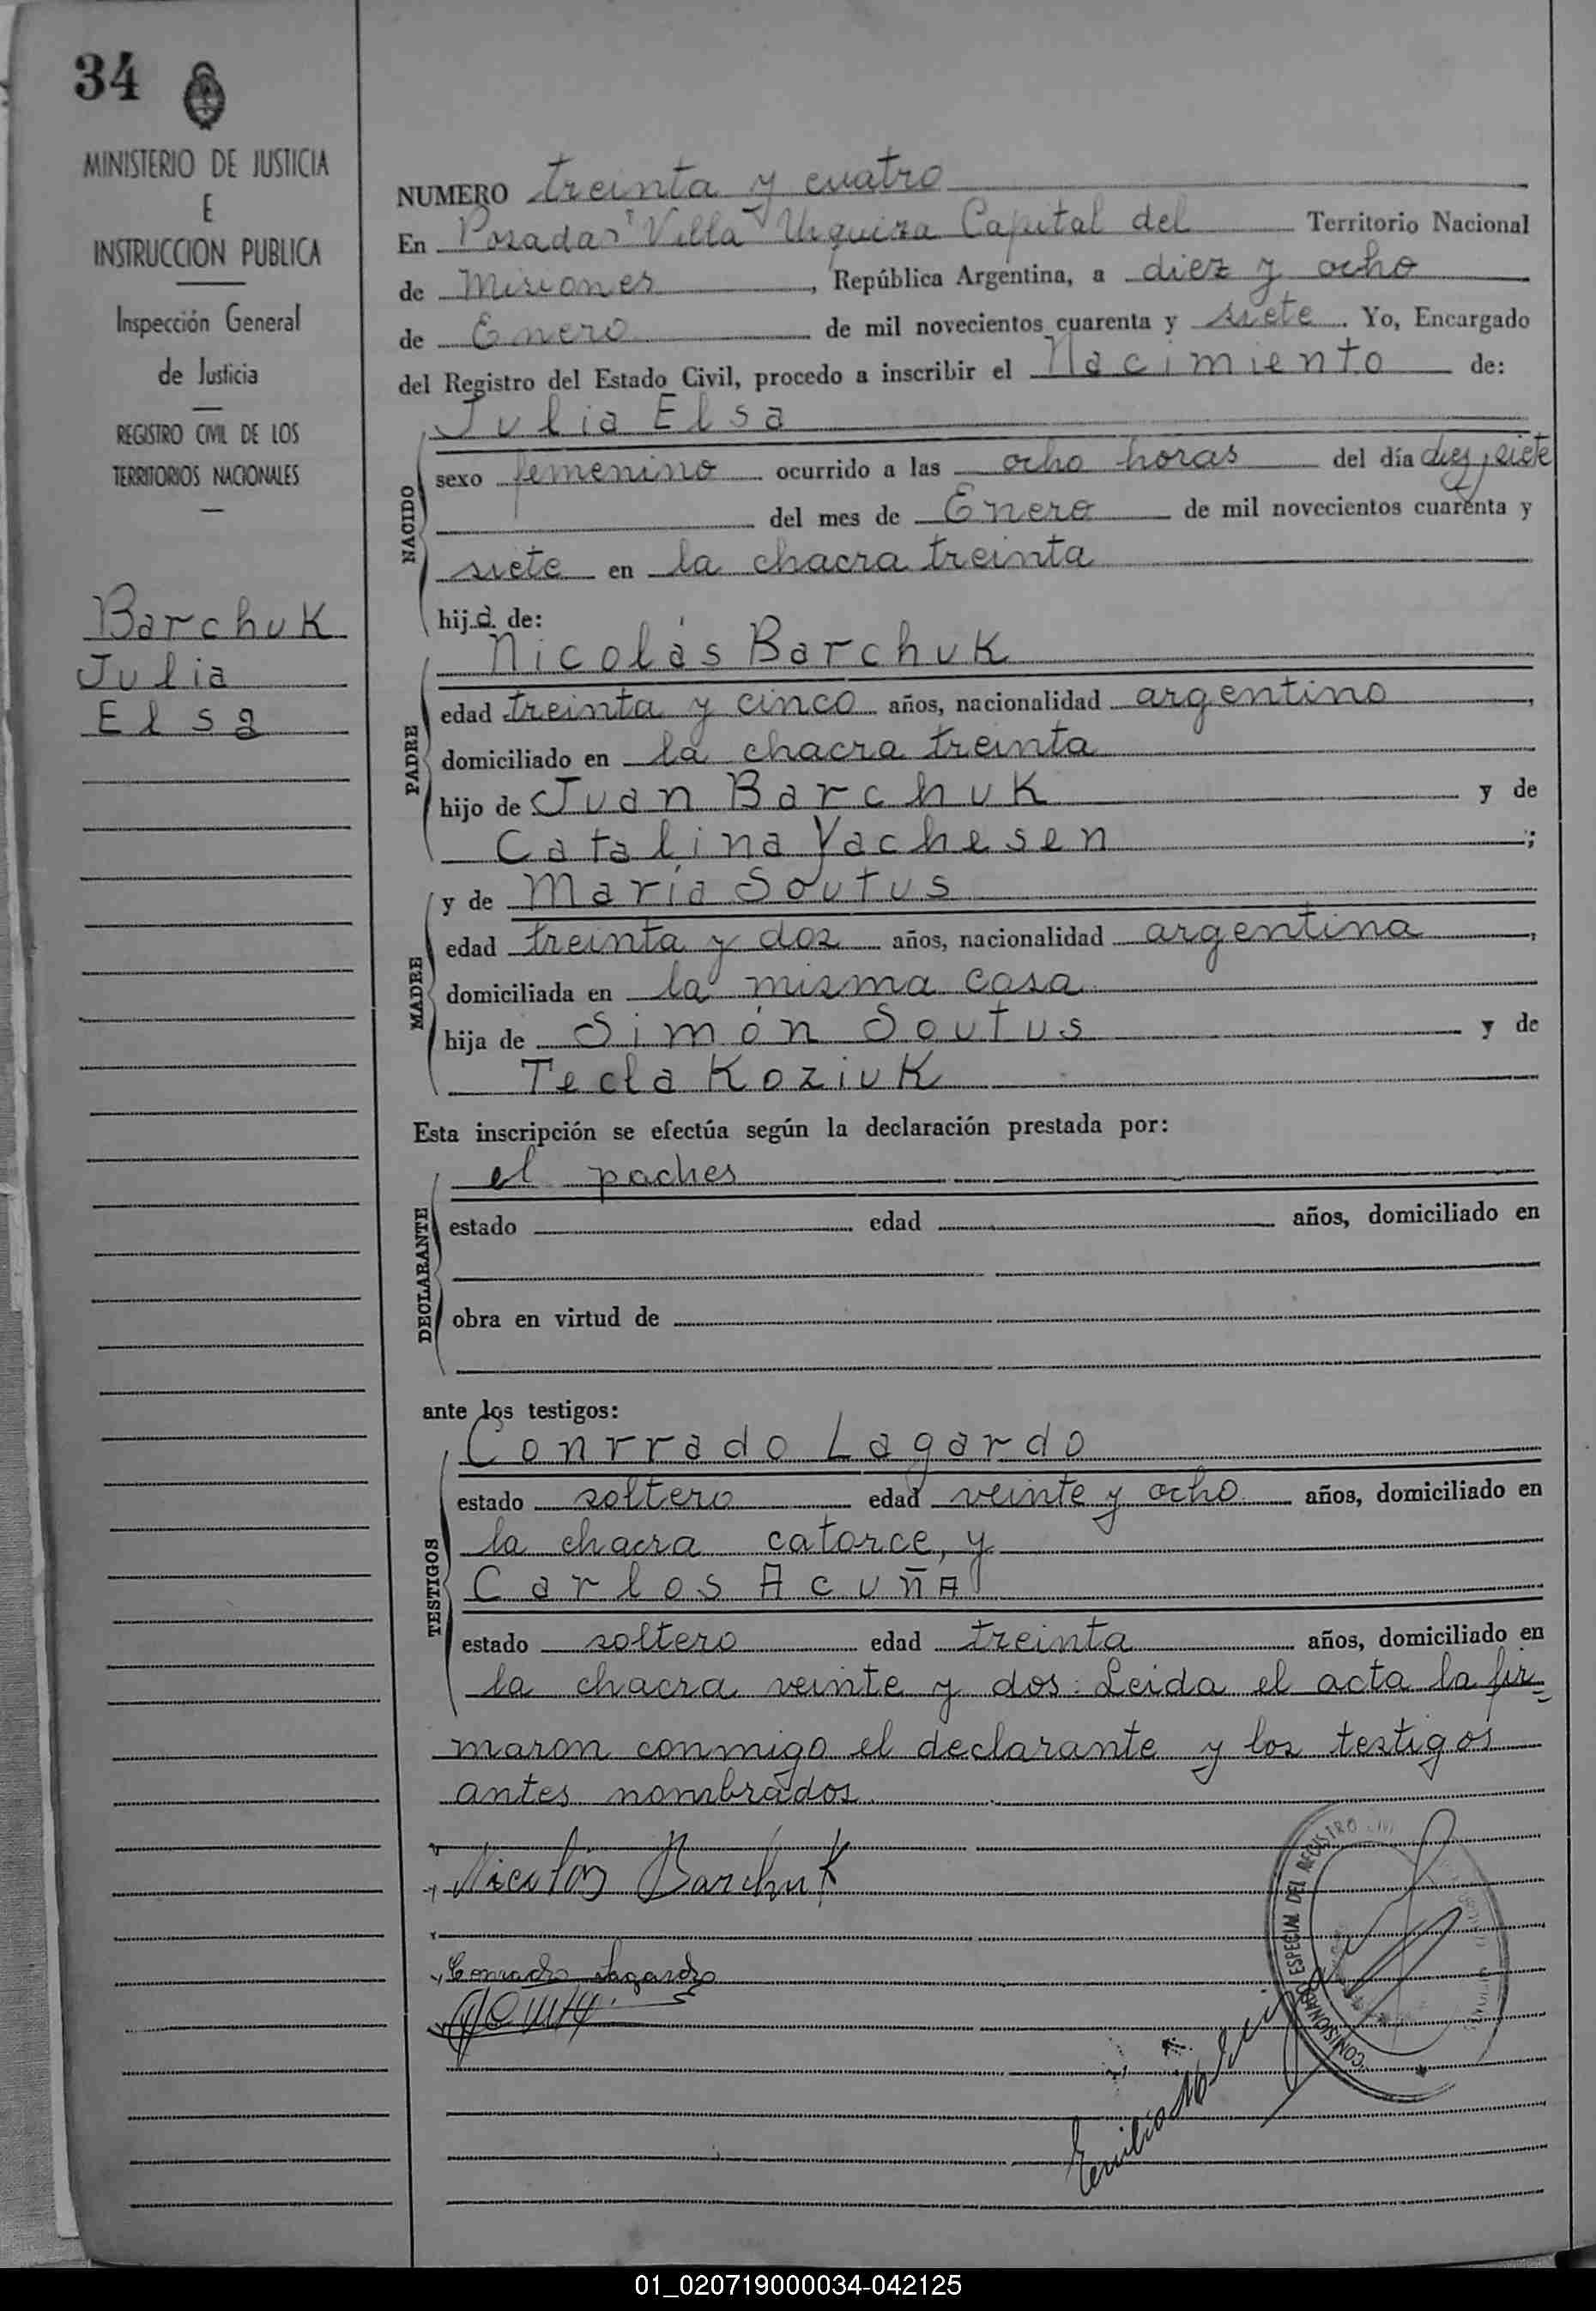 34
MINISTERIO DE JUSTICIA
E
INSTRUCCION PUBLICA
Inspección General
de Justicia
REGISTRO CIVIL DE LOS
TERRITORIOS NACIONALES
Barchuk
Julia
Elsa
NUMERO treinta y cuatro
En Posadas "Villa Urquiza Capital del Territorio Nacional
de Misiones, República Argentina, a diez y ocho
de Enero de mil novecientos cuarenta y siete. Yo, Encargado
del Registro del Estado Civil, procedo a inscribir el Nacimiento de:
Julia Elsa
NACIDO
sexo femenino ocurrido a las ocho horas del día diez y siete
del mes de Enero de mil novecientos cuarenta y
siete en la chacra treinta
hija de:
Nicolás Barchuk
PADRE
edad treinta y cinco años, nacionalidad argentino,
domiciliado en la chacra treinta
hijo de Juan Barchuk y de
Catalina Yachesen;
y de María Soutus
MADRE
edad treinta y dos años, nacionalidad argentina,
domiciliada en la misma casa
hija de Simón Soutus y de
Tecla Koziuk
Esta inscripción se efectúa según la declaración prestada por:
el paches
DECLARANTE
estado edad años, domiciliado en
obra en virtud de
ante los testigos:
Conrrado Lagardo
TESTIGOS
estado soltero edad veinte y ocho años, domiciliado en
la chacra catorce, y
Carlos AcuñA
estado soltero edad treinta años, domiciliado en
la chacra veinte y dos: Leida el acta la fir=
maron conmigo el declarante y los testigos
antes nombrados
Nicolás Barchuk
Conrado Lagardo
COMISIONADO ESPECIAL DEL REGISTRO CIVIL
Emilio
01_020719000034-042125